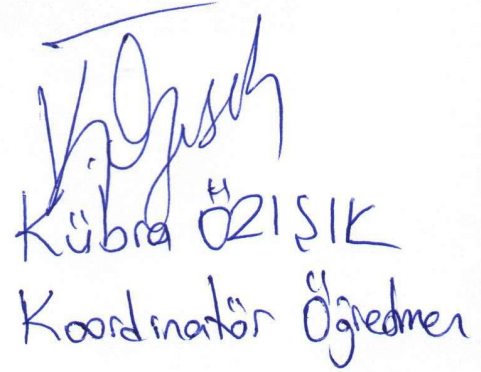 K. Özışık
Kübra ÖZIŞIK
Koordinatör Öğretmen